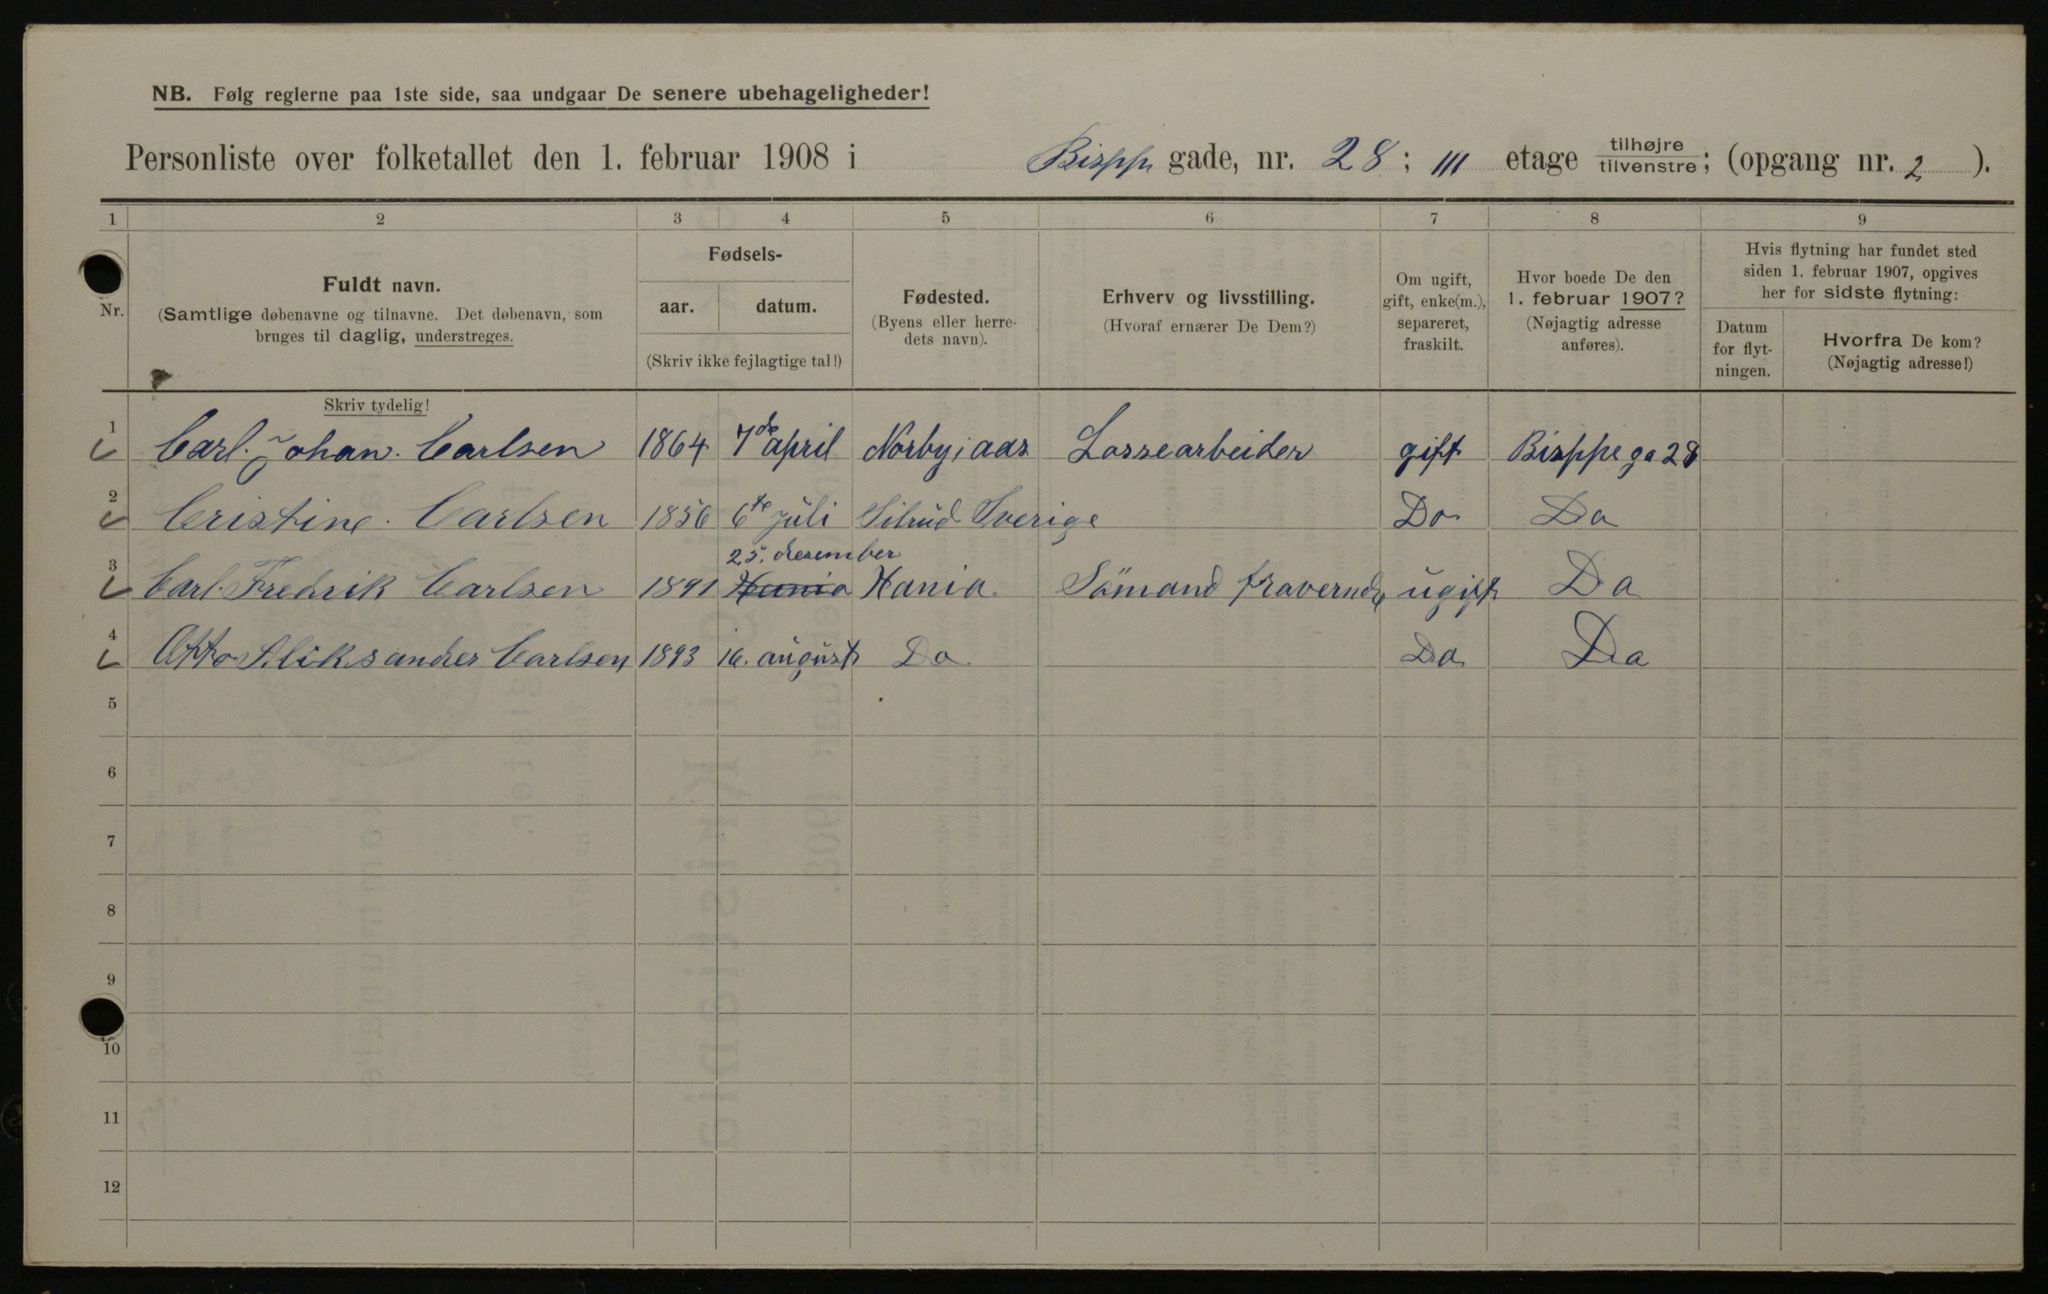 NB. Følg reglerne paa 1ste side, saa undgaar De senere ubehageligheder!
Personliste over folketallet den 1. februar 1908 i Bispp gade, nr. 28; III etage tilhøjre/tilvenstre; (opgang nr. 2 ).
1 2 3 4 5 6 7 8 9
Nr.
Fuldt navn.
(Samtlige døbenavne og tilnavne. Det døbenavn, som
bruges til daglig, understreges.
Skriv tydelig!
Fødsels-
aar. datum.
(Skriv ikke fejlagtige tal!)
Fødested.
(Byens eller herre-
dets navn).
Erhverv og livsstilling.
(Hvoraf ernærer De Dem?)
Om ugift,
gift, enke(m.),
separeret,
fraskilt.
Hvor boede De den
1. februar 1907?
(Nøjagtig adresse
anføres).
Hvis flytning har fundet sted
siden 1. februar 1907, opgives
her for sidste flytning:
Datum
for flyt-
ningen.
Hvorfra De kom?
(Nøjagtig adresse!)
1 Carl. Johan. Carlsen 1864 7de april Norby i aas Lossearbeider gift Bisppega 28
2 Cristine. Carlsen 1856 6te juli Silrud Sverige Do Do
25. desember
3 Carl. Fredrik Carlsen 1891 Xania Xania Sömand fravernde ugift Do
4 Otto Aliksander Carlsen 1893 16. august Do Do Do
5
6
7
8
9
10
11
12